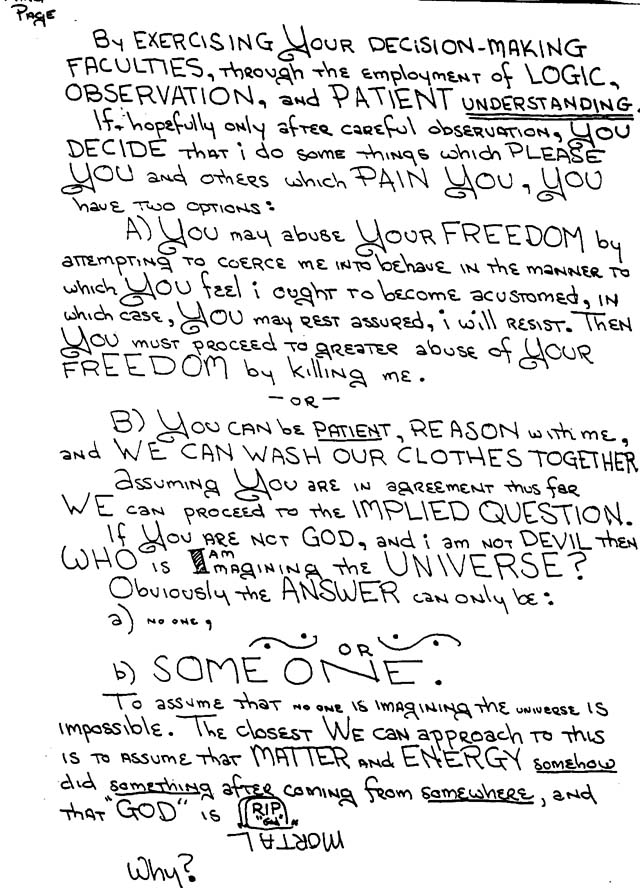 PAGE
By EXERCISING YOUR DECISION-MAKING
FACULTIES, THROUGH THE EMPLOYMENT of LOGIC,
OBSERVATION, and PATIENT UNDERSTANDING.
If, hopefully only after careful observation, YOU
DECIDE that i do some things which PLEASE
YOU and others which PAIN YOU, YOU
have two options:
A) YOU may abuse YOUR FREEDOM by
attempting to coerce me into behave in the manner to
which YOU feel i ought to become acustomed, in
which case, YOU may rest assured, i will RESIST. Then
YOU must proceed to greater abuse of YOUR
FREEDOM by killing me.
- OR -
B) YOU CAN be PATIENT, REASON with me,
and WE CAN WASH OUR CLOTHES TOGETHER
assuming YOU are in agreement thus far
WE can proceed to the IMPLIED QUESTION.
If YOU ARE NOT GOD, and i am not DEVIL then
WHO is I AM IMAGINING the UNIVERSE?
Obviously the ANSWER can only be:
a) no one,
OR
b) SOME ONE.
To assume that no one is imagining the universe is
impossible. The closest WE can approach to this
is to assume that MATTER and ENERGY somehow
did something after coming from somewhere, and
that "GOD" is RIP "God"
MORTAL
Why?